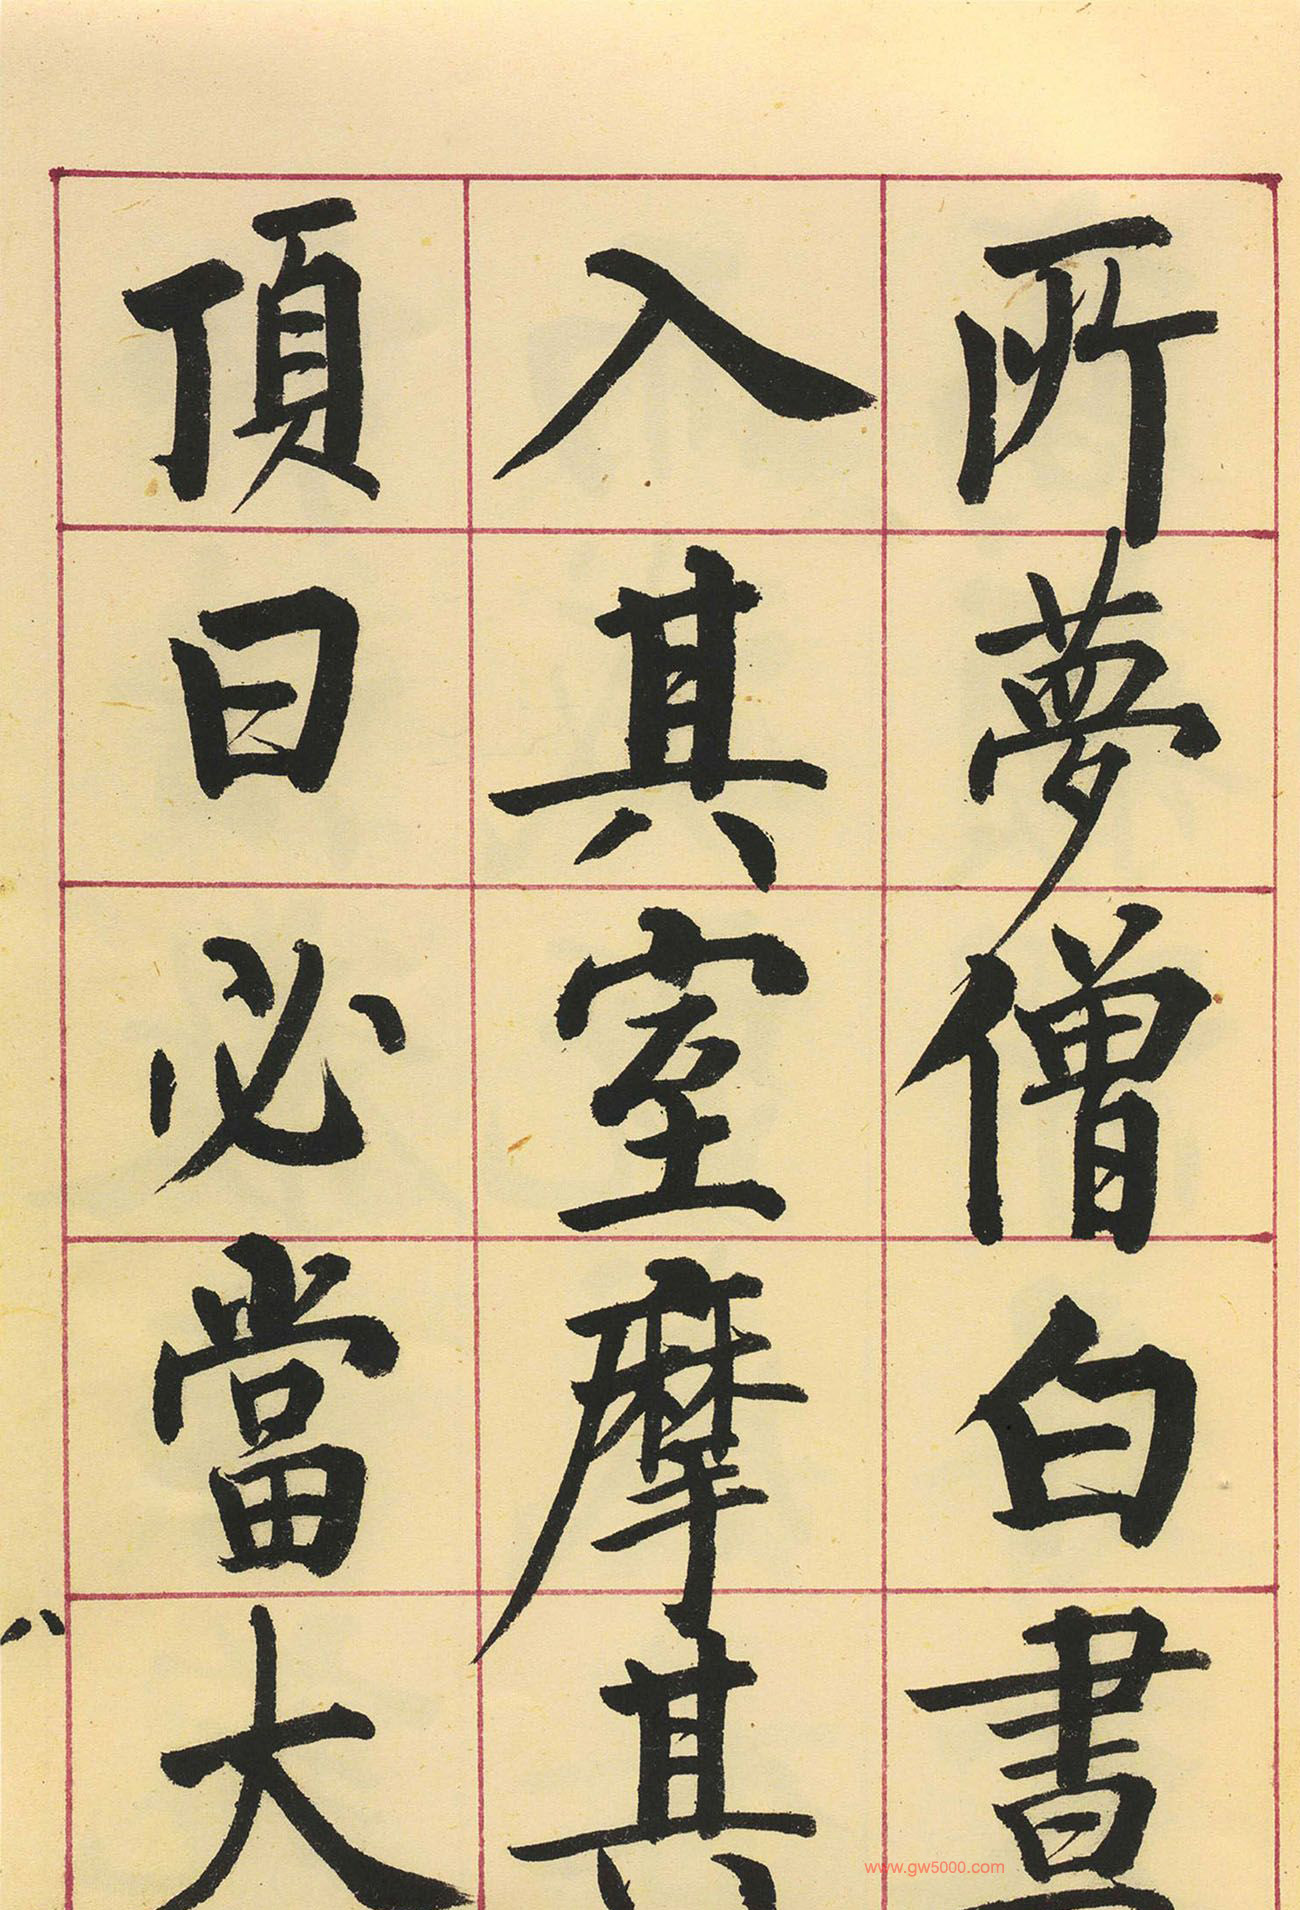 所夢僧白晝
入其室摩其
頂曰必當大
八
www.gw5000.com